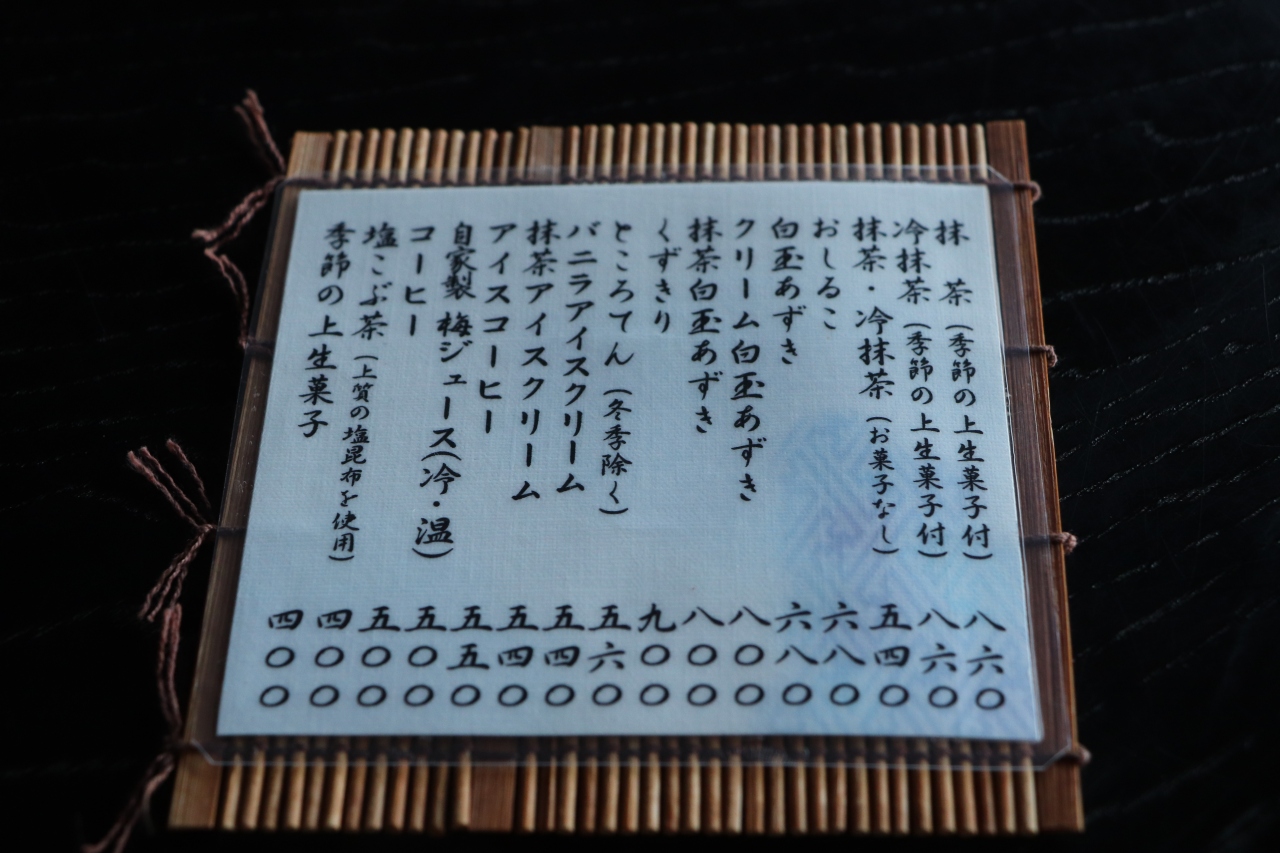 抹 茶(季節の上生菓子付) 八六〇
冷抹茶(季節の上生菓子付) 八六〇
抹茶・冷抹茶(お菓子なし) 五四〇
おしるこ 六八〇
白玉あずき 六八〇
クリーム白玉あずき 八〇〇
抹茶白玉あずき 八〇〇
くずきり 九〇〇
ところてん(冬季除く) 五六〇
バニラアイスクリーム 五四〇
抹茶アイスクリーム 五四〇
アイスコーヒー 五五〇
自家製 梅ジュース(冷・温) 五〇〇
コーヒー 五〇〇
塩こぶ茶(上質の塩昆布を使用) 四〇〇
季節の上生菓子 四〇〇